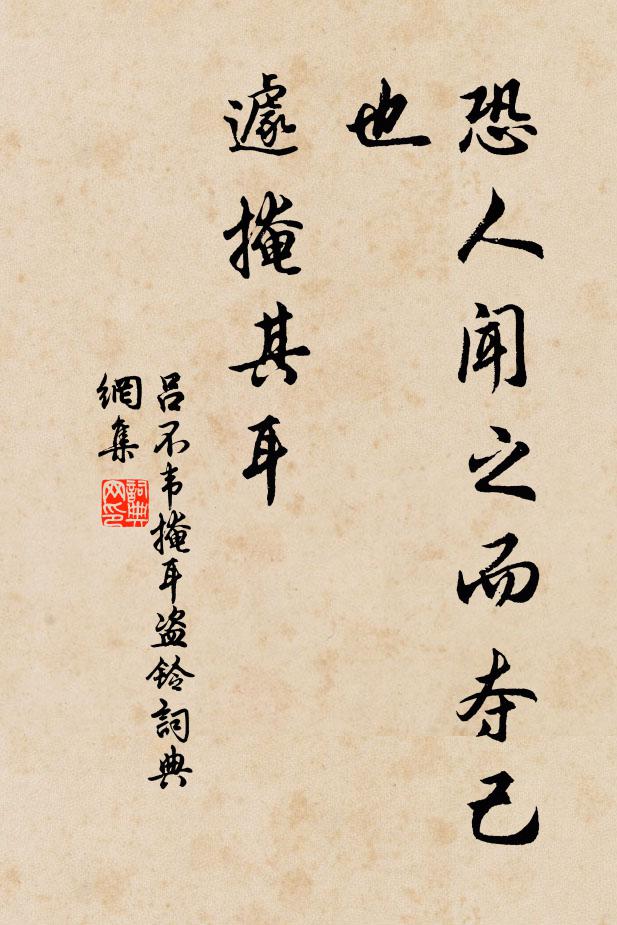 恐人闻之而夺己
也
遽掩其耳
吕不韦掩耳盗铃詞典
網集
詞典
网印